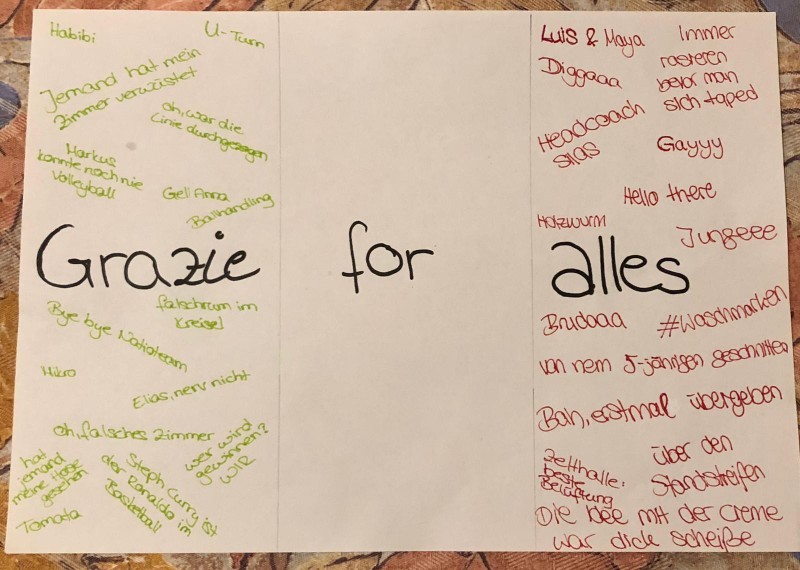 Habibi
U-Turn
Jemand hat mein
Zimmer verwüstet
oh, war die
Linie durchgezogen
Markus
konnte noch nie
Volleyball
Gell Anna
Ballhandling
Grazie
falschrum im
Kreisel
Bye bye Natioteam
Mikro
Elias, nerv nicht
oh, falsches Zimmer
wer wird
gewinnen?
WIR
hat
jemand
meine Hose
gesehen
Steph Curry ist
der Ronaldo im
Basketball
Tomata
for
Luis & Maya
Immer
rasieren
bevor man
sich taped
Diggaaa
Headcoach
Silas
Gayyy
Hello there
Holzwurm
Jungeee
alles
Brudaaa
#Waschmarken
von nem 5-jährigen geschnitten
Bah, erstmal übergeben
Zelthalle:
beste
Belüftung
über den
Standstreifen
Die Idee mit der Creme
war dick scheiße